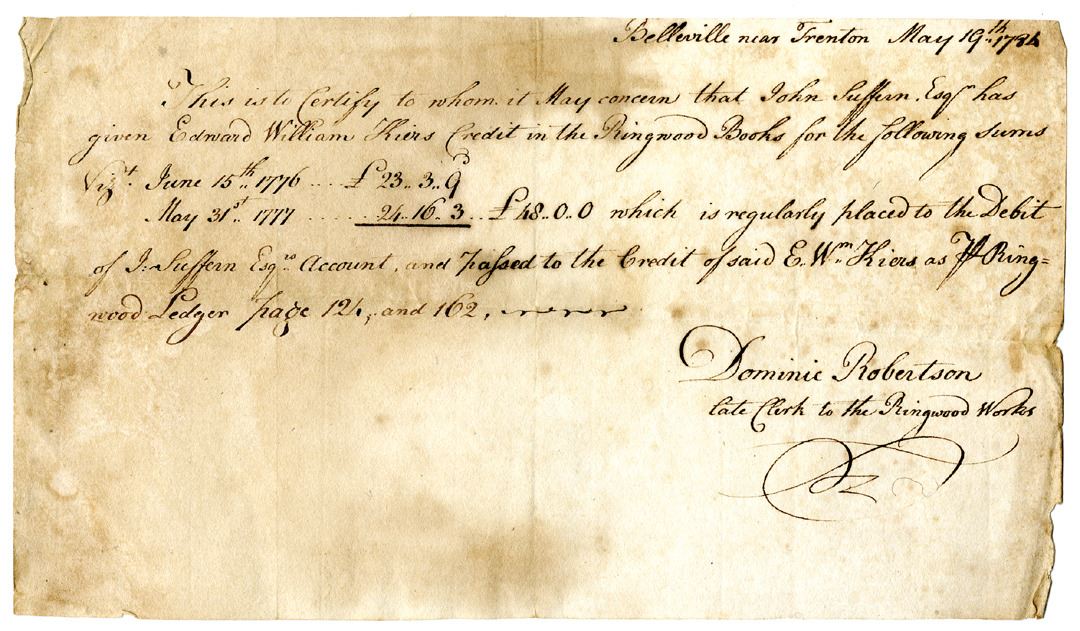 Belleville near Trenton May 19th. 1784
This is to Certify to whom it May concern that John Suffern Esqr has
given Edward William Kiers Credit in the Ringwood Books for the following sums
Vizt. June 15th. 1776 .... £23..3..9d
May 31st. 1777 ........ 24..16..3.. £48..0..0 which is regularly placed to the Debit
of J: Suffern Esqrs Account, and passed to the Credit of said E. Wm. Kiers as ⅌ Ring=
wood Ledger page 124, and 162,
Dominic Robertson
late Clerk to the Ringwood Works